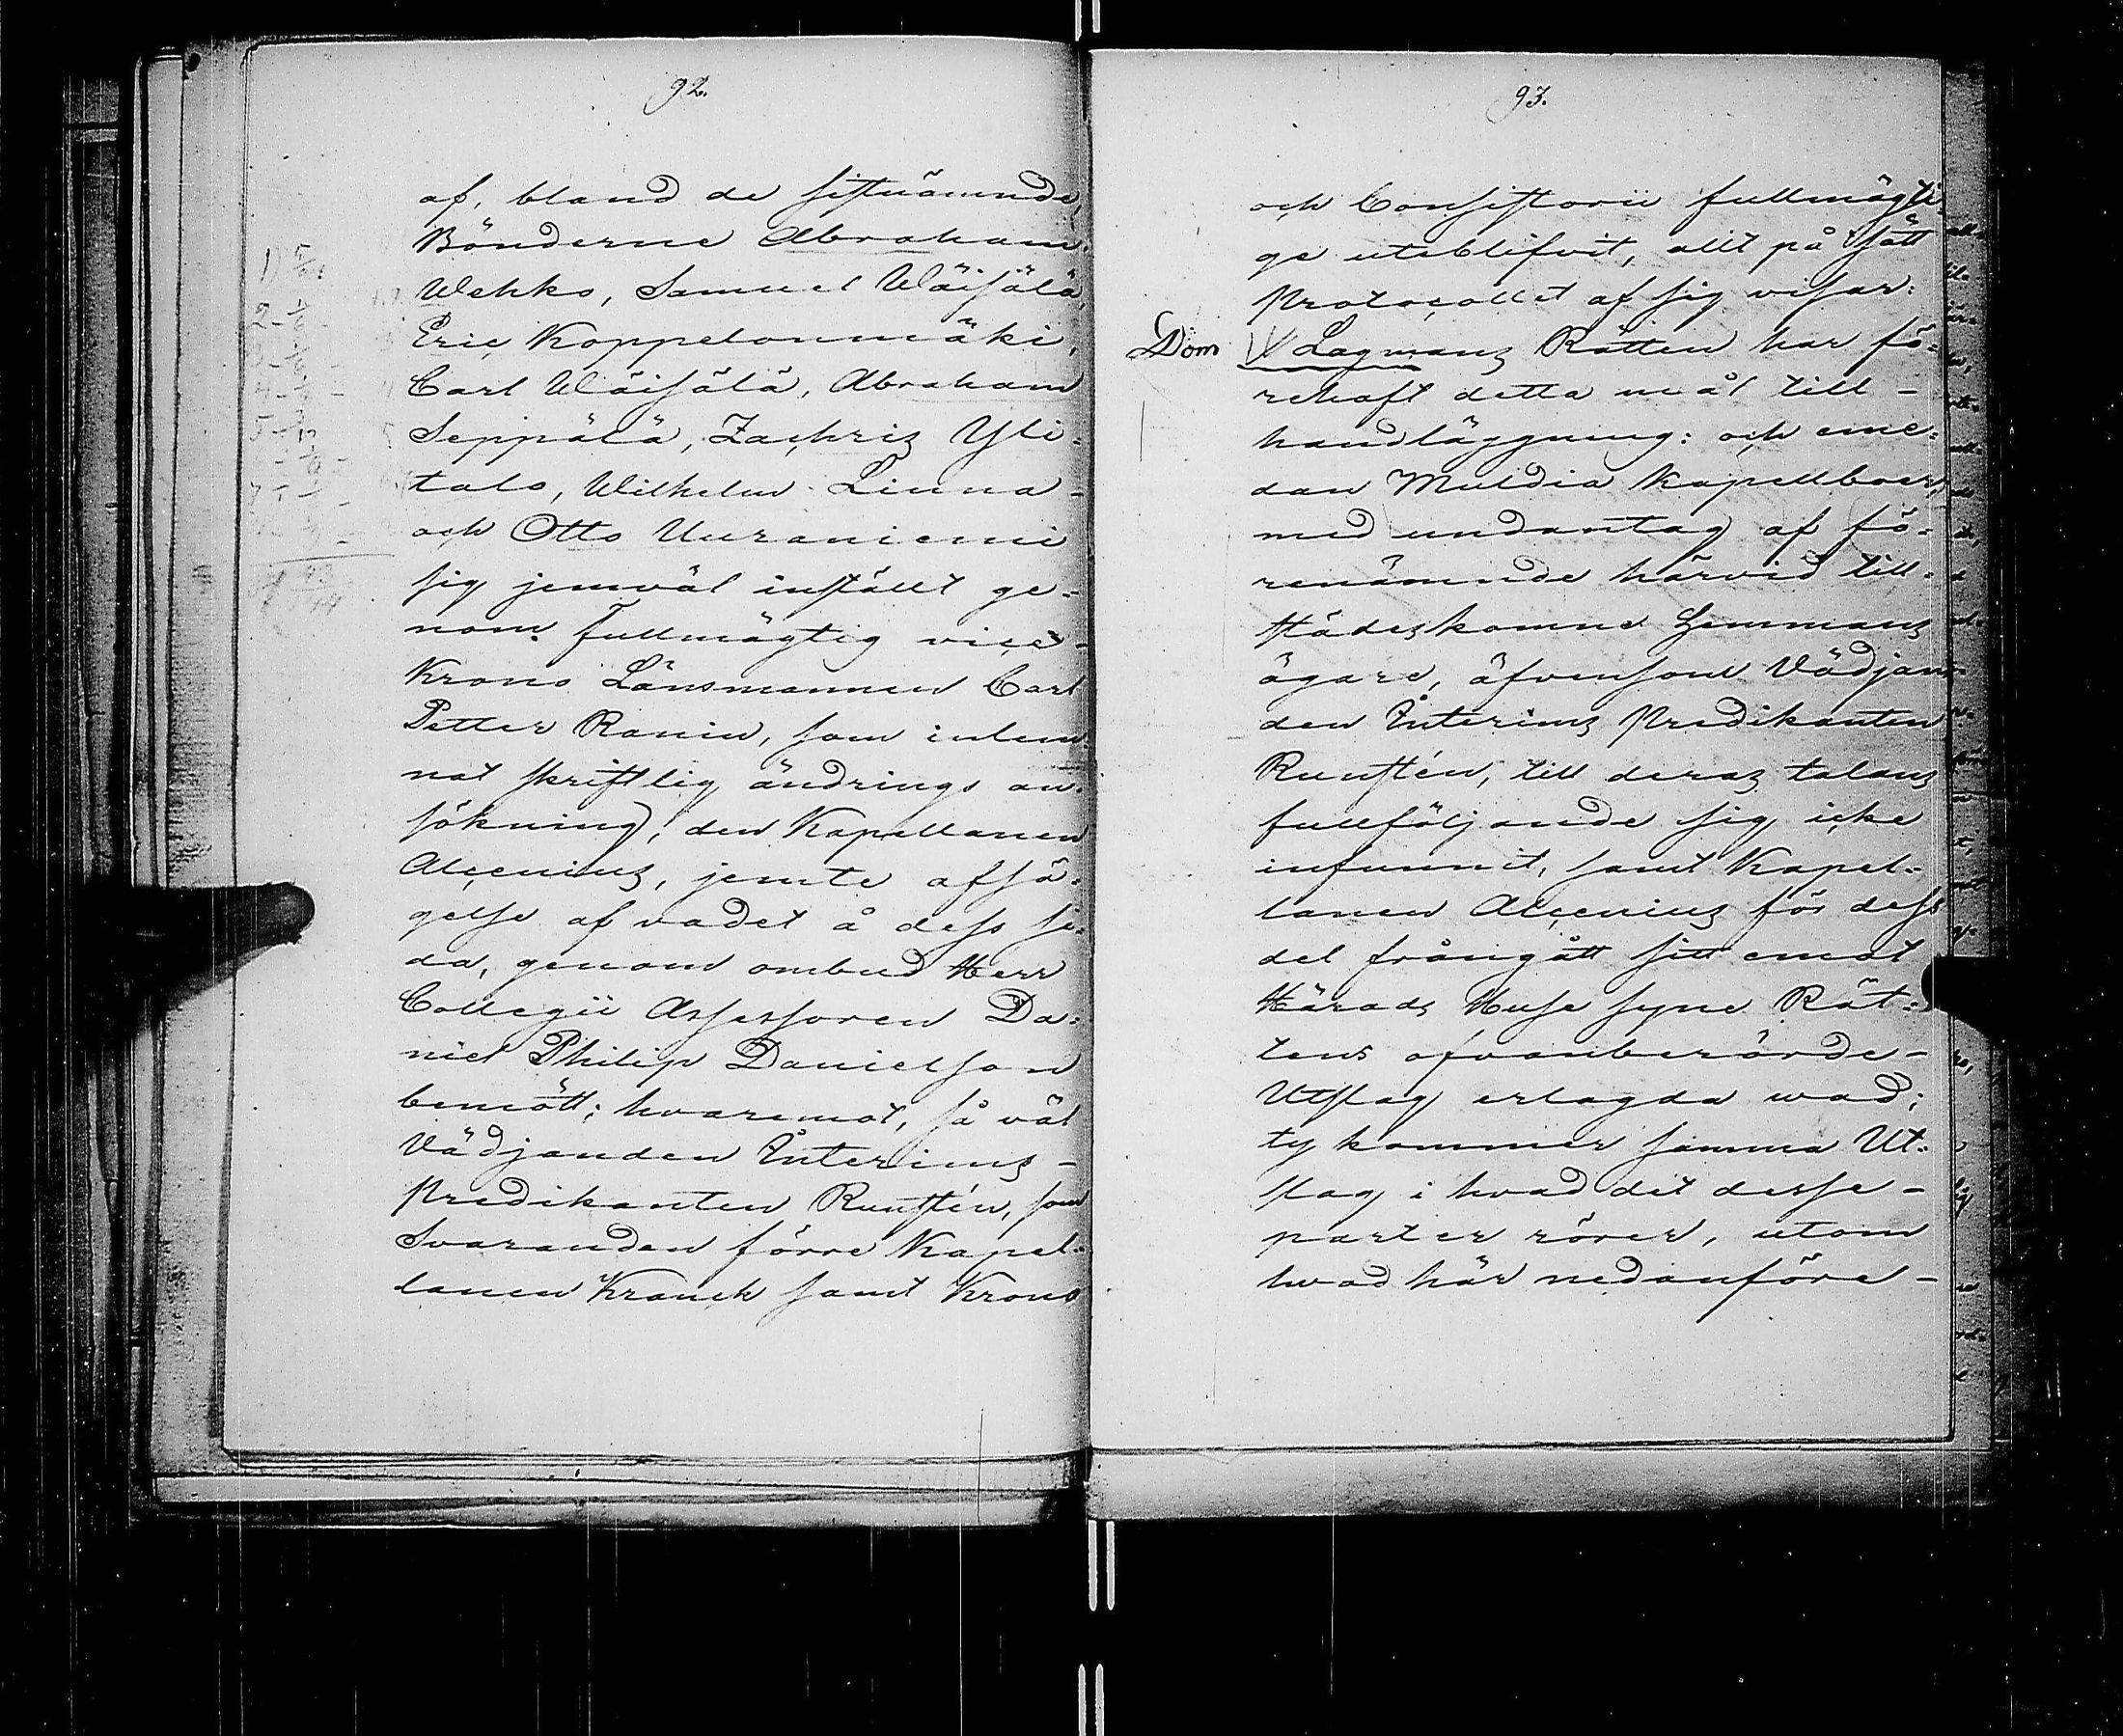 92.
af, bland de sistnämnde,
Bönderne Abraham
Wehko, Samuel Wäisälä,
Eric Koppelonmäki,
Carl Wäisälä, Abraham
Seppälä, Zachris Yli-
talo, Wilhelm Linna-
och Otto Uuraniemi
sig jemväl inställt ge-
nom Fullmägtig vice-
Krono Länsmannen Carl
Petter Ranin, som inlem-
nat skriftlig ändrings an-
sökning; den Kapellanen
Alcenius, jemte afsä-
gelse af vadet å dess si-
da, genom ombud Herr
Collegii Assessoren Da-
niel Philip Danielson
bemött; hvaremot, så väl
Vädjanden Interims-
Predikanten Runstén, som
Svaranden förre Kapel-
lanen Kranck samt Krono
93.
och Consistorii fullmägti-
ge uteblifvit, allt på sätt
Protocollet af sig visar:
Dom Lagmans Rätten har fö-
rehaft detta mål till-
handläggning: och eme-
dan Muldia Kapellboer,
med undantag af fö-
renämnde härvid till-
städeskomne Hemmans
ägare, äfvensom Vädjan-
den Interims Predikanten
Runstén, till deras talans
fullföljande sig icke
infunnit, samt Kapel-
lanen Alcenius för dess
del frångått sitt emot
Härads Huse syne Rät-
tens ofvanberörde-
Utslag erlagda wad;
ty kommer samma Ut-
slag i hvad det desse-
parter rörer, utom
hvad här nedanföre-